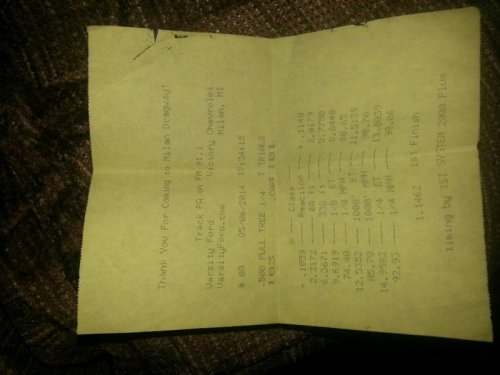 Thank You For Coming to Milan Dragway!
Track PA on FM 91.1
Varsity Ford Victory Chevrolet
VarsityFord.com Milan, MI
# 80 05-06-2014 19:34:15
.500 FULL TREE 1/4 T TRIALS
103 LANE 101
---- Class ----
+ .1059 --- Reaction --- + .1140
2.3172 --- 60 ft --- 2.0179
6.3671 --- 330 ft ---
9.6919 --- 1/8 ET --- 8.8440
74.40 --- 1/8 MPH --- 80.65
12.5352 --- 1000' ET --- 11.5135
85.70 --- 1000' MPH --- 90.70
14.9582 --- 1/4 ET ---
92.93 --- 1/4 MPH ---
1.1462 1st Finish
timing by TSI SYSTEM 2000 Plus